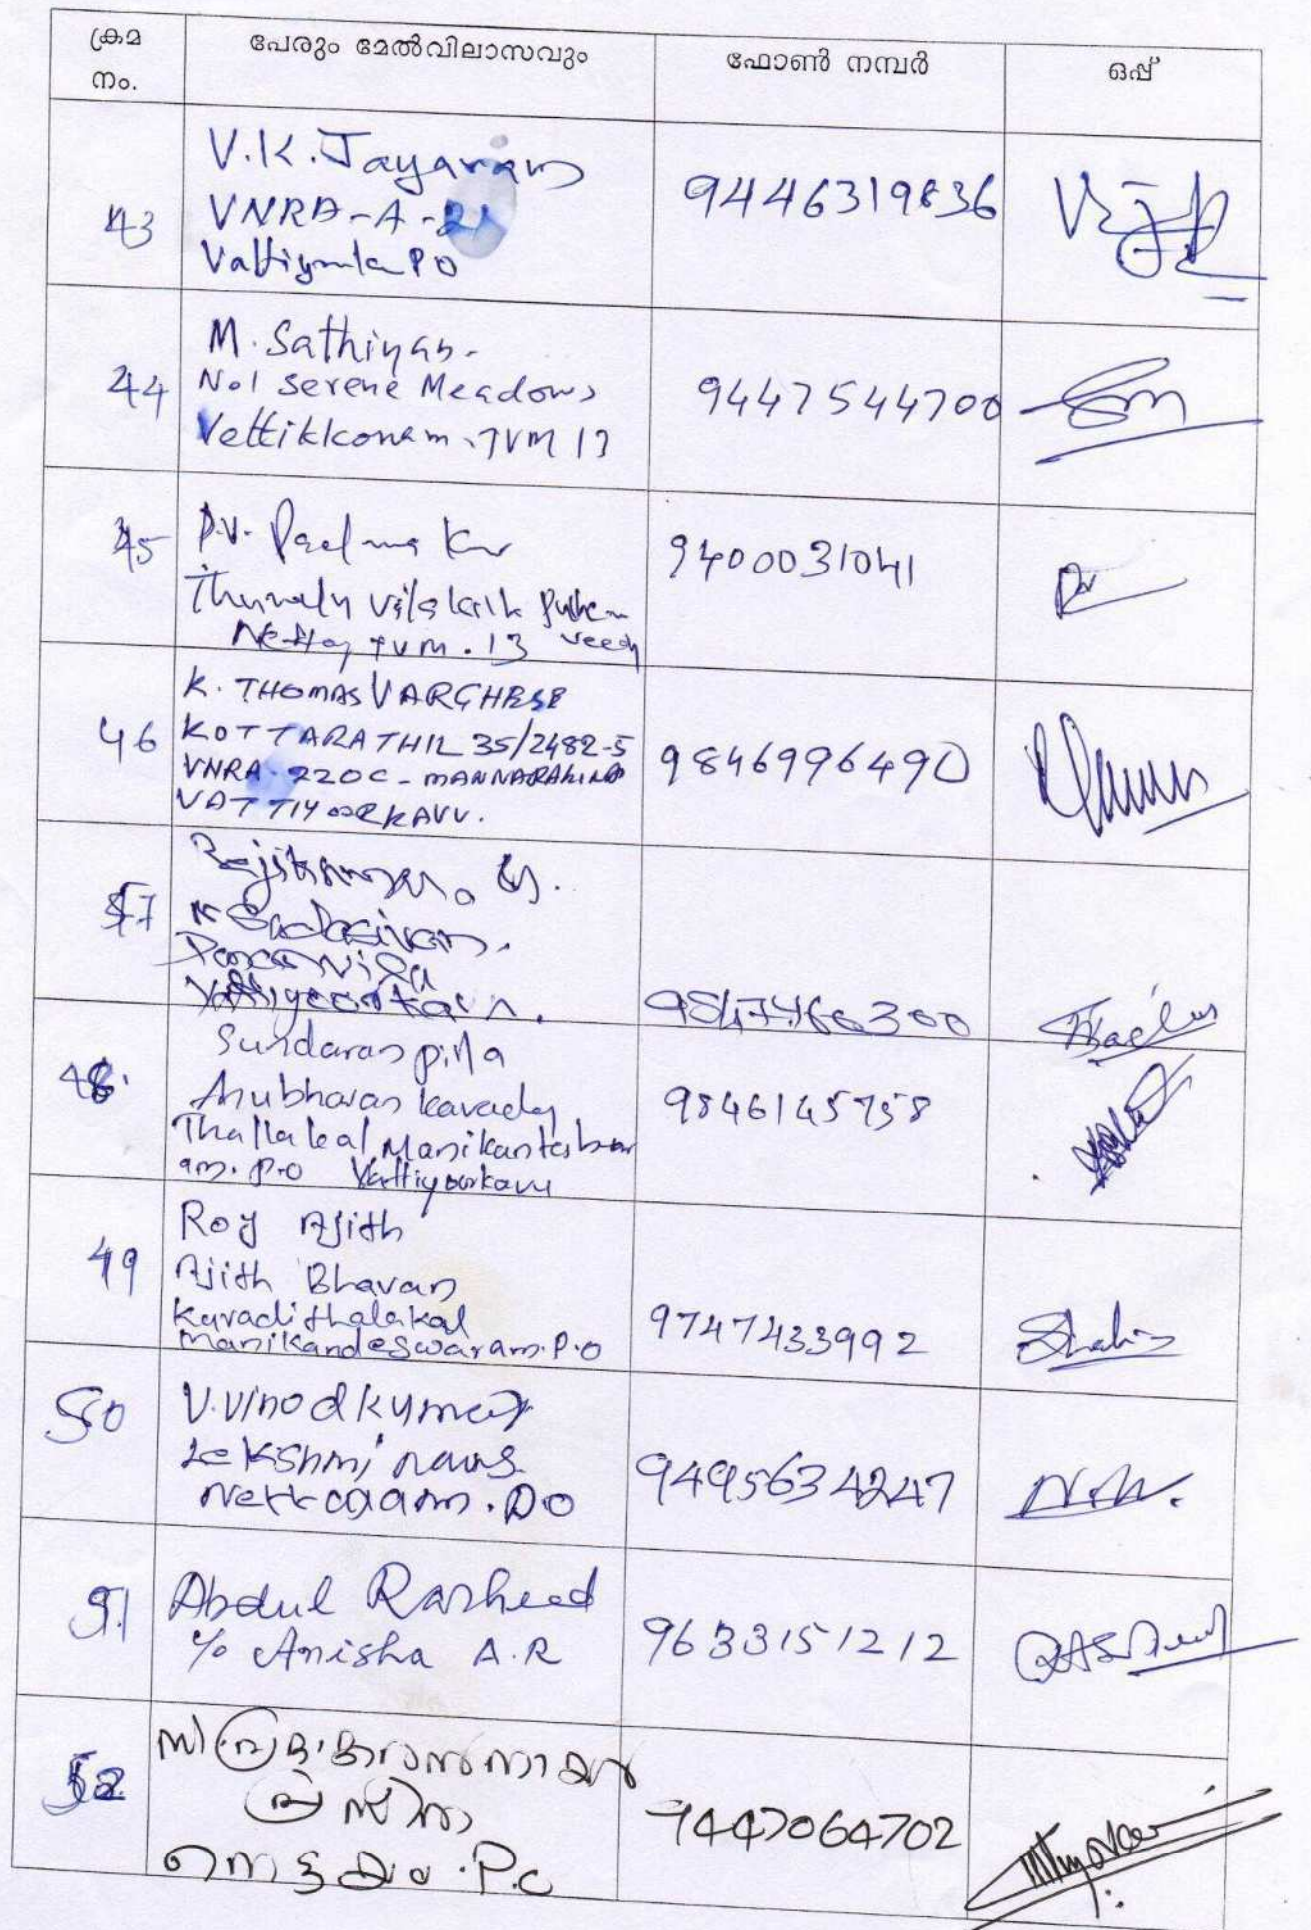 ക്രമ
നം.
പേരും മേൽവിലാസവും
ഫോൺ നമ്പർ
ഒപ്പ്
43
V.K. Jayaram
VNRA-A-21
PO
9446319836
44
M. Sathiyan.
No1 Serene Meadows
Vettikkonam. TVM 13
9447544700
45
P.V.
TVM. 13
9400031041
46
K. THOMAS VARGHESE
KOTTARATHIL 35/2482-5
VNRA 220C -
VATTIYOORKAVU.
9846996490
47
Sadasivan.
Vattiyoorkavu.
9847460300
48.
Sundaran pilla
Anubhavan Kavady
Thallakal Manikantesbwar
am. P.O Vattiyoorkavu
9846145758
49
Roy Ajith
Ajith Bhavan
Kavadi thalakal
Manikandeswaram. P.O
9747433992
50
V. Vinodkumar
Lekshmi
PO
9495634247
51
Abdul Rasheed
C/o Anisha A.R
9633151212
52
നെട്ടയം
9447064702